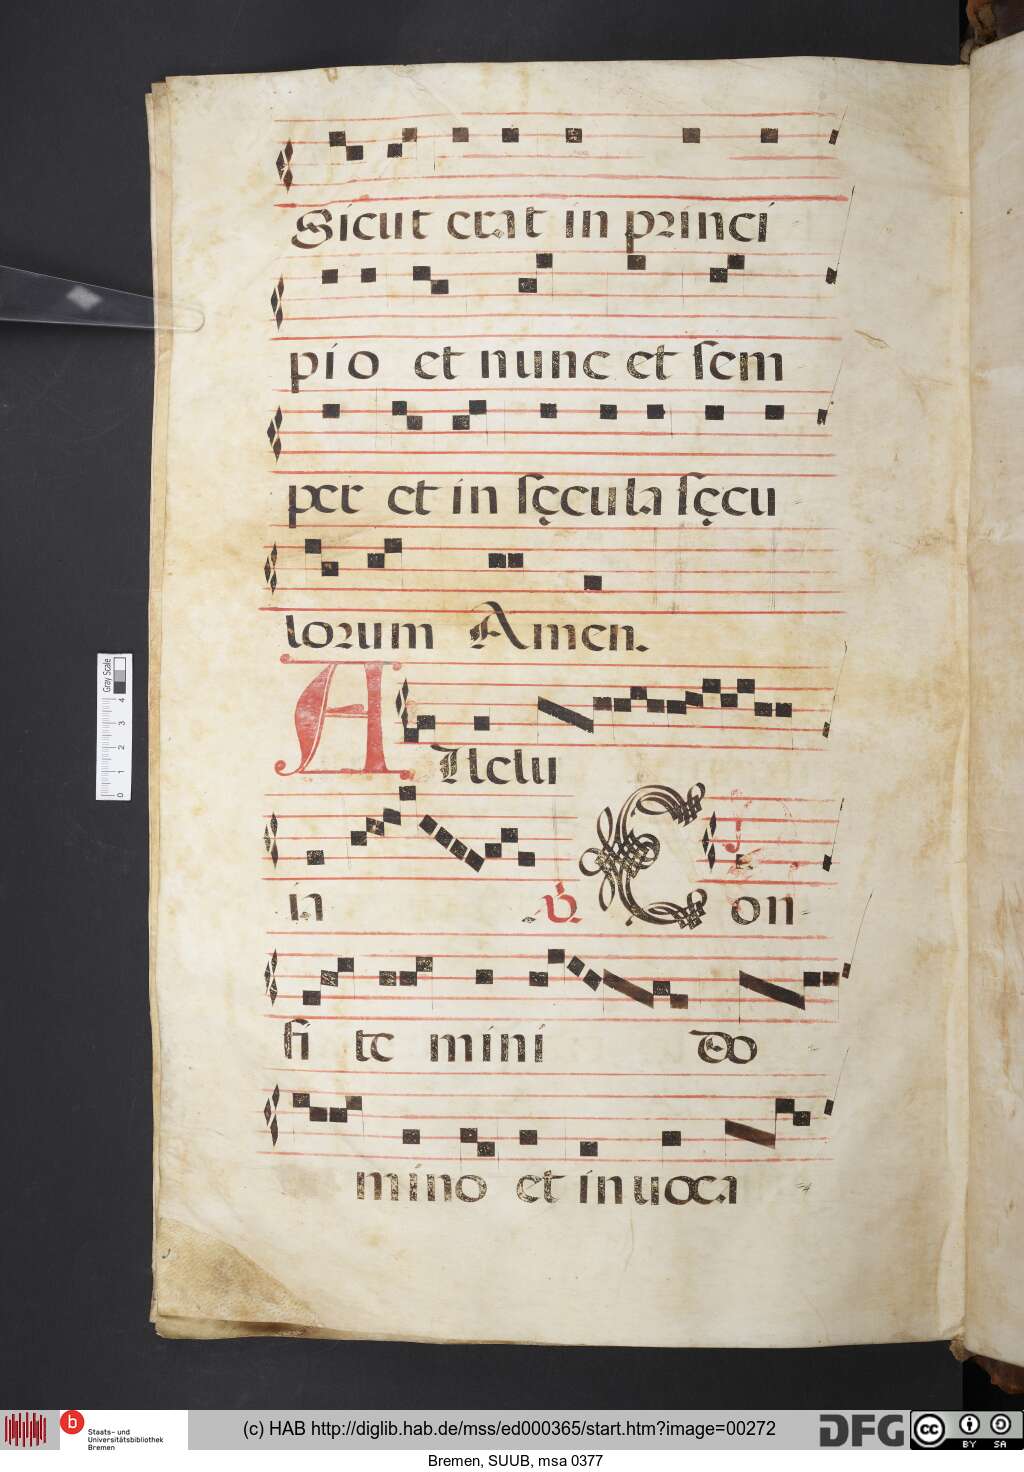 Sicut erat in princi
pio et nunc et sem
per et in sęcula sęcu
lorum Amen.
Allelu
ia
Con
fi te mini Do
mino et inuoca
Gray Scale
0 1 2 3 4
b
Staats- und
Universitätsbibliothek
Bremen
(c) HAB http://diglib.hab.de/mss/ed000365/start.htm?image=00272
DFG
cc BY SA
Bremen, SUUB, msa 0377